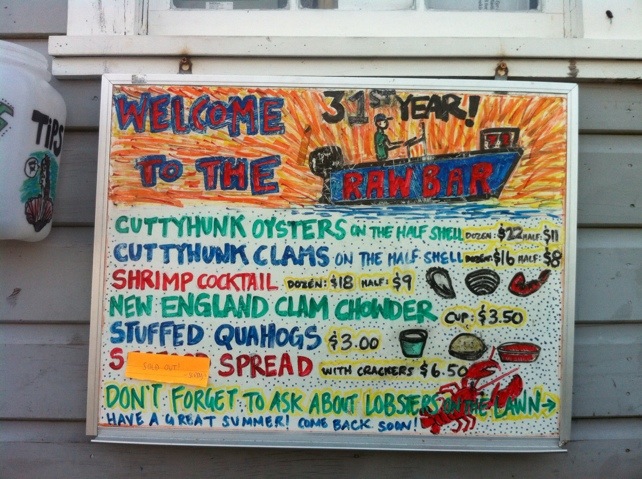 TIPS
WELCOME 31ST YEAR!
TO THE RAW BAR
CUTTYHUNK OYSTERS ON THE HALF SHELL DOZEN: $22 HALF: $11
CUTTYHUNK CLAMS ON THE HALF SHELL DOZEN: $16 HALF: $8
SHRIMP COCKTAIL DOZEN: $18 HALF: $9
NEW ENGLAND CLAM CHOWDER CUP: $3.50
STUFFED QUAHOGS $3.00
SPREAD WITH CRACKERS $6.50
SOLD OUT!
DON'T FORGET TO ASK ABOUT LOBSTERS ON THE LAWN→
HAVE A GREAT SUMMER! COME BACK SOON!